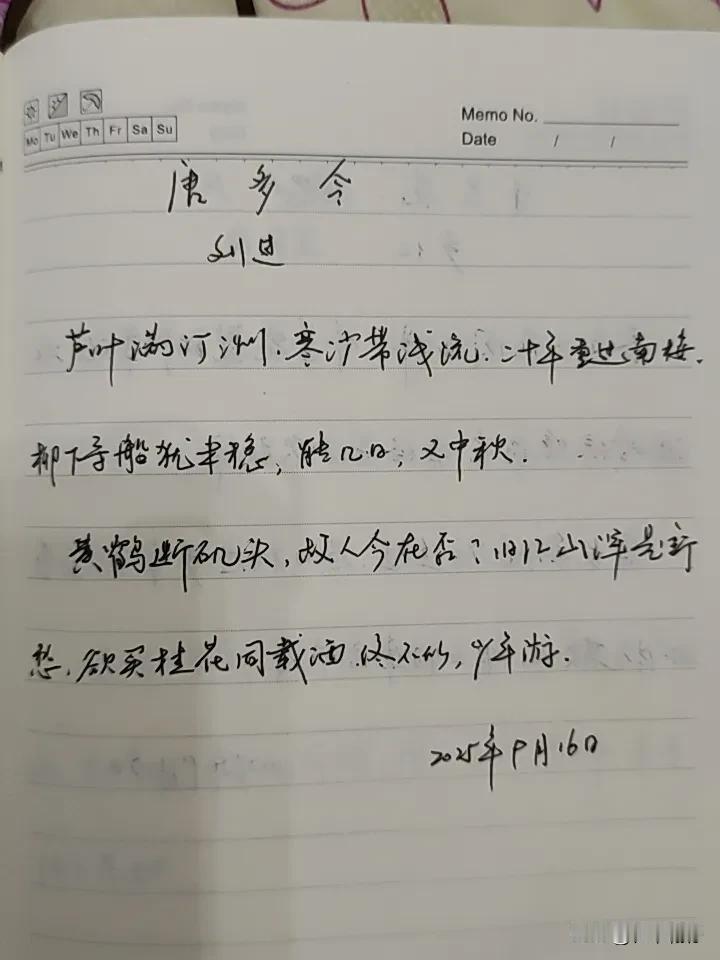 Mo Tu We Th Fr Sa Su
Memo No.
Date / /
唐多令
刘过
芦叶满汀洲.寒沙带浅流.二十年重过南楼.
柳下系船犹未稳,能几日,又中秋.
黄鹤断矶头,故人今在否?旧江山浑是新
愁.欲买桂花同载酒.终不似,少年游.
2025年9月16日